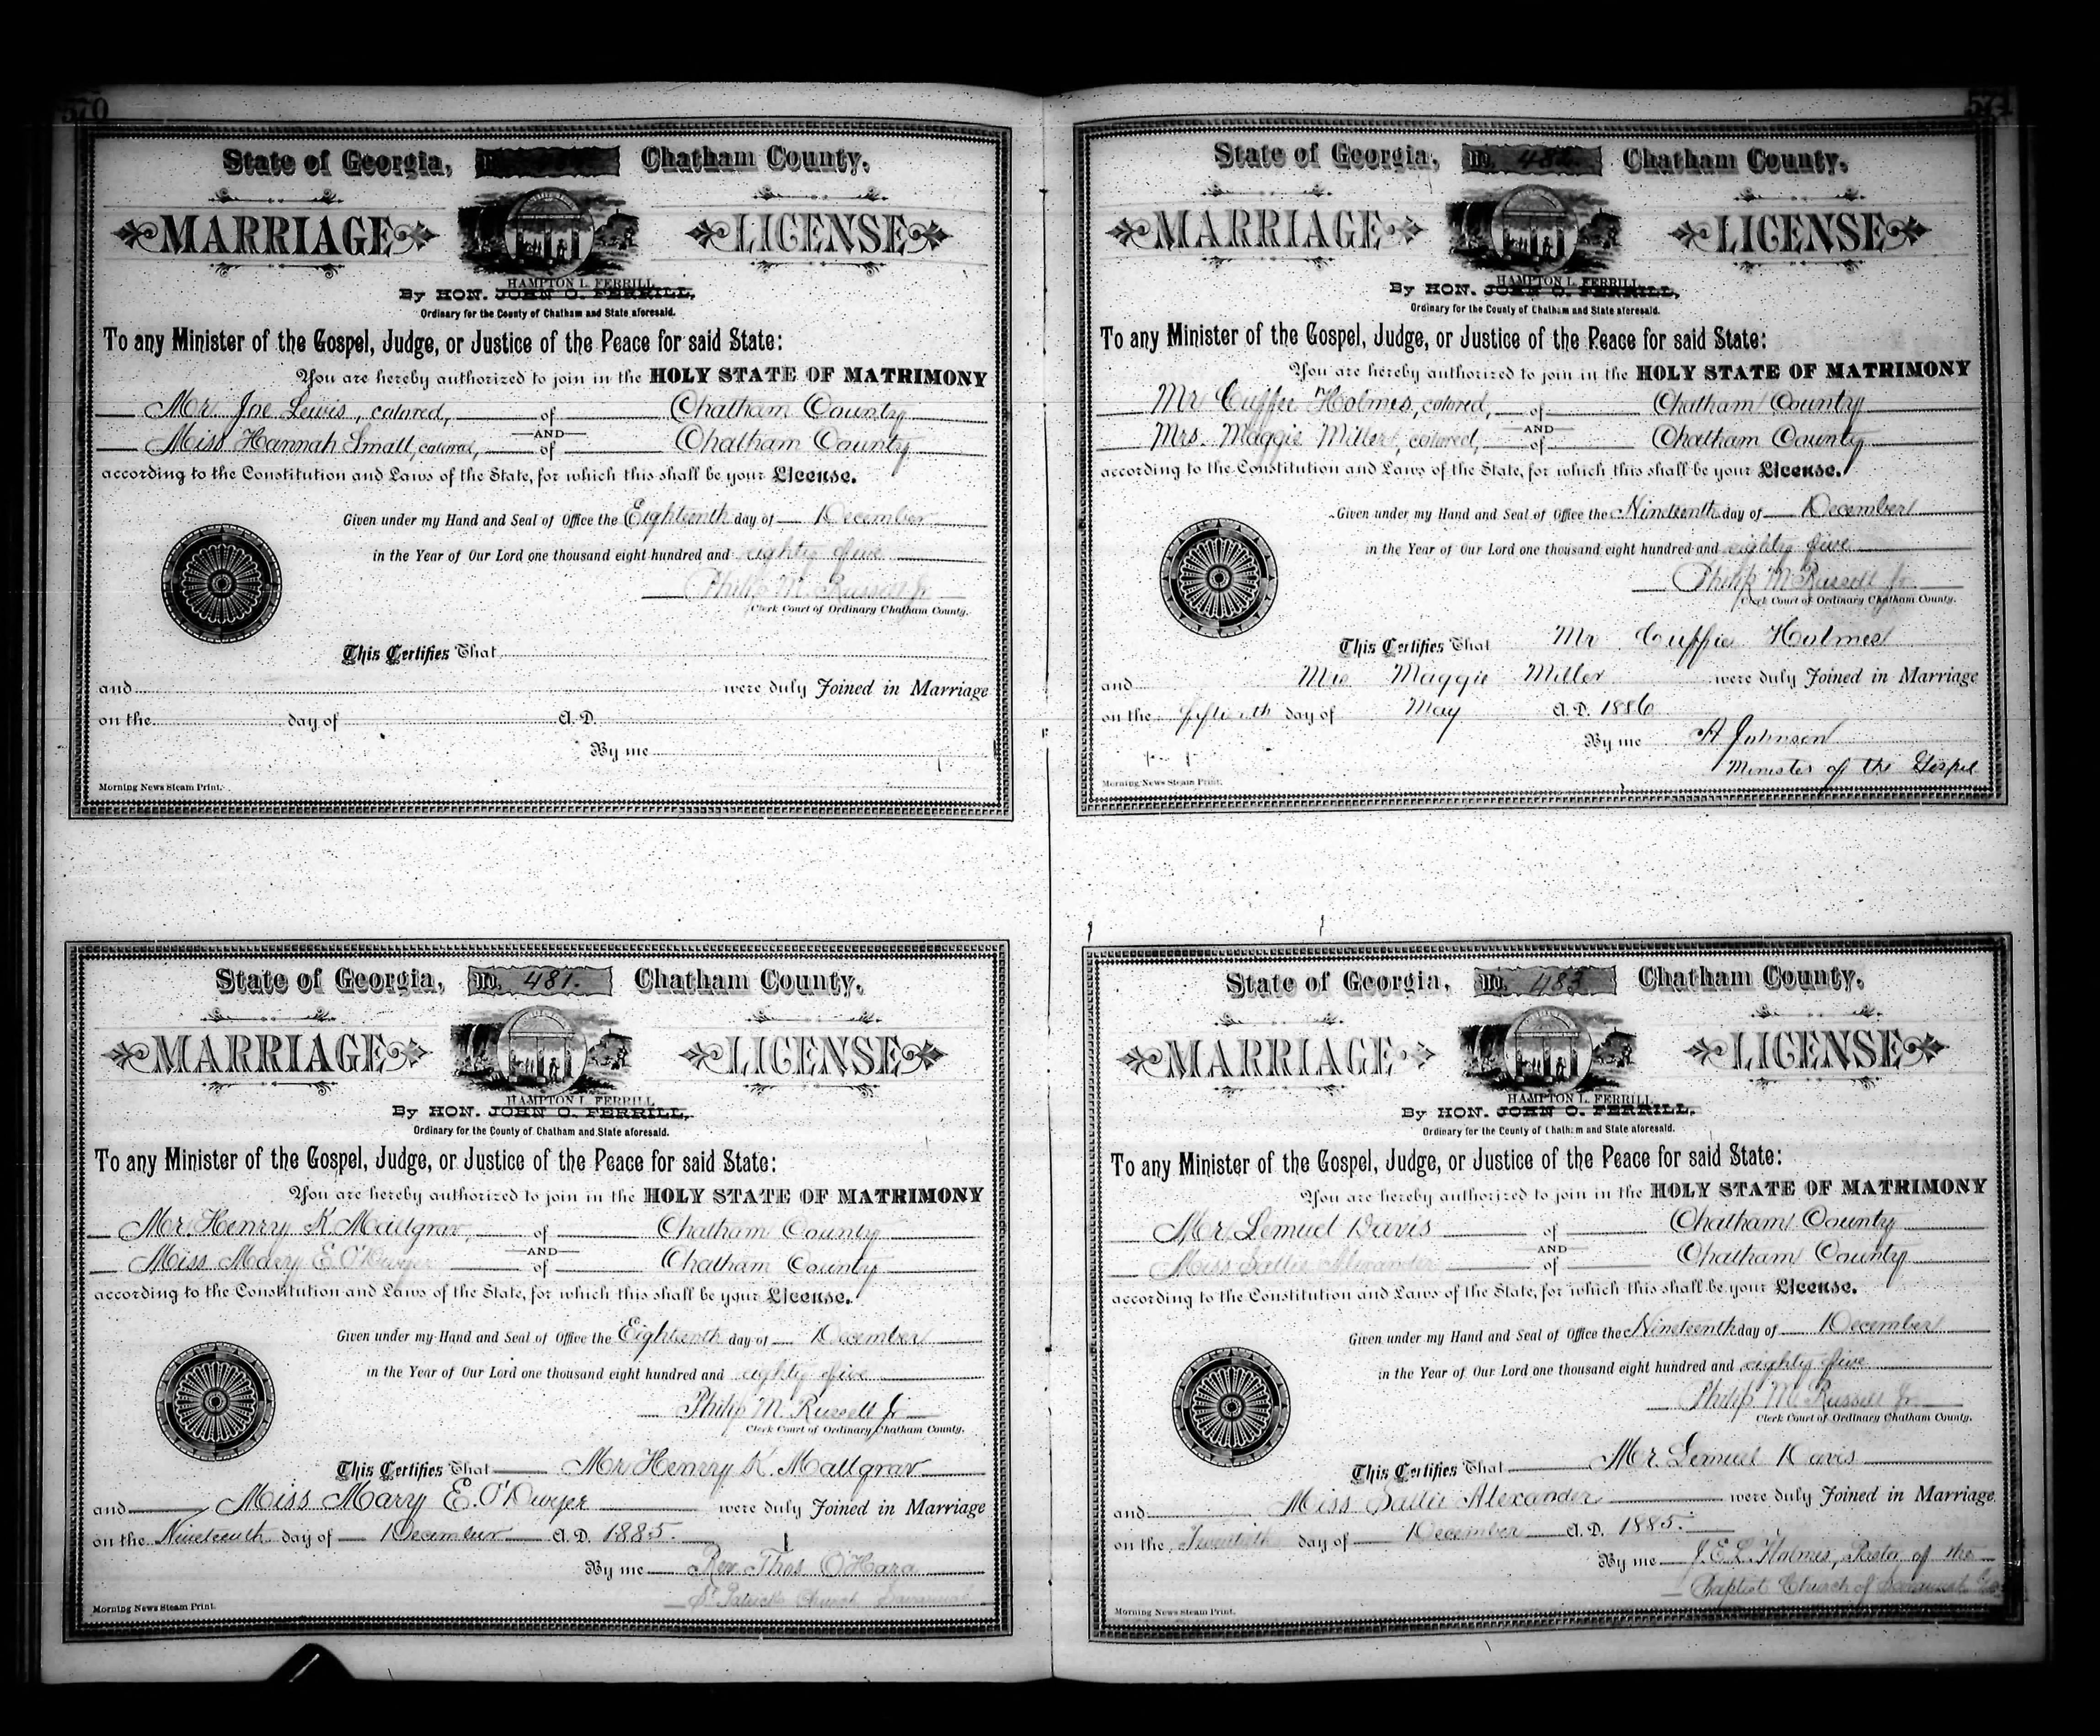 570
State of Georgia, Chatham County.
MARRIAGE LICENSE
HAMPTON L. FERRILL
By HON. JOHN O. FERRILL,
Ordinary for the County of Chatham and State aforesaid.
To any Minister of the Gospel, Judge, or Justice of the Peace for said State:
You are hereby authorized to join in the HOLY STATE OF MATRIMONY
Mr. Joe Lewis, colored, of Chatham County
AND
Miss Hannah Small, colored, of Chatham County
according to the Constitution and Laws of the State, for which this shall be your License.
Given under my Hand and Seal of Office the Eighteenth day of December
in the Year of Our Lord one thousand eight hundred and eighty five
Philip M. Russell Jr
Clerk Court of Ordinary Chatham County.
This Certifies That
and were duly Joined in Marriage
on the day of A.D.
By me
Morning News Steam Print.
State of Georgia, No. 481. Chatham County.
MARRIAGE LICENSE
HAMPTON L. FERRILL
By HON. JOHN O. FERRILL,
Ordinary for the County of Chatham and State aforesaid.
To any Minister of the Gospel, Judge, or Justice of the Peace for said State:
You are hereby authorized to join in the HOLY STATE OF MATRIMONY
Mr. Henry K. Mallgrav, of Chatham County
AND
Miss Mary E. O'Dwyer of Chatham County
according to the Constitution and Laws of the State, for which this shall be your License.
Given under my Hand and Seal of Office the Eighteenth day of December
in the Year of Our Lord one thousand eight hundred and eighty five
Philip M. Russell Jr
Clerk Court of Ordinary Chatham County.
This Certifies That Mr Henry K. Mallgrav
and Miss Mary E. O'Dwyer were duly Joined in Marriage
on the Nineteenth day of December A.D. 1885.
By me Rev. Thos O'Hara
St Patrick's Church Savannah
Morning News Steam Print.
571
State of Georgia, No. 482. Chatham County.
MARRIAGE LICENSE
HAMPTON L. FERRILL
By HON. JOHN O. FERRILL,
Ordinary for the County of Chatham and State aforesaid.
To any Minister of the Gospel, Judge, or Justice of the Peace for said State:
You are hereby authorized to join in the HOLY STATE OF MATRIMONY
Mr Cuffee Holmes, colored, of Chatham County
AND
Mrs. Maggie Miller, colored, of Chatham County
according to the Constitution and Laws of the State, for which this shall be your License.
Given under my Hand and Seal of Office the Nineteenth day of December
in the Year of Our Lord one thousand eight hundred and eighty five
Philip M. Russell Jr
Clerk Court of Ordinary Chatham County.
This Certifies That Mr Cuffie Holmes
and Mrs Maggie Miller were duly Joined in Marriage
on the day of May A.D. 1886
By me A Johnson
Minister of the Gospel
Morning News Steam Print.
State of Georgia, No. 483 Chatham County.
MARRIAGE LICENSE
HAMPTON L. FERRILL
By HON. JOHN O. FERRILL,
Ordinary for the County of Chatham and State aforesaid.
To any Minister of the Gospel, Judge, or Justice of the Peace for said State:
You are hereby authorized to join in the HOLY STATE OF MATRIMONY
Mr. Lemuel Davis of Chatham County
AND
Miss Sallie Alexander of Chatham County
according to the Constitution and Laws of the State, for which this shall be your License.
Given under my Hand and Seal of Office the Nineteenth day of December
in the Year of Our Lord one thousand eight hundred and eighty five
Philip M. Russell Jr.
Clerk Court of Ordinary Chatham County.
This Certifies That Mr. Lemuel Davis
and Miss Sallie Alexander were duly Joined in Marriage
on the Twentieth day of December A.D. 1885.
By me J. E. L. Holmes, Pastor of the
Baptist Church of Savannah Ga
Morning News Steam Print.